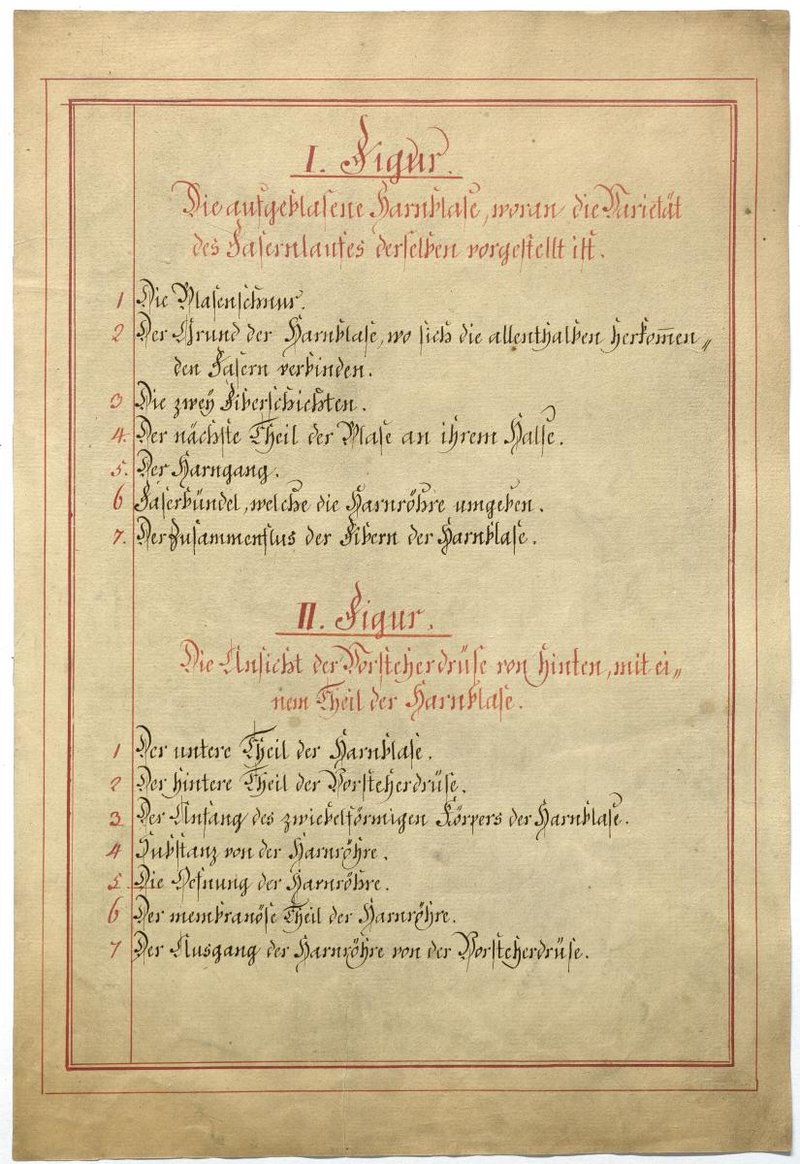 I. Figur.
Die aufgeblasene Harnblase, woran die Varietät
des Fasernlaufes derselben vorgestellt ist.
1 Die Blasenschnur.
2 Der Grund der Harnblase, wo sich die allenthalben herkom̅en„
den Fasern verbinden.
3 Die zweÿ Fiberschichten.
4. Der nächste Theil der Blase an ihrem Halse.
5. Der Harngang.
6 Faserbündel, welche die Harnröhre umgeben.
7. Der Zusammenflus der Fibern der Harnblase.
II. Figur.
Die Ansicht der Vorsteherdrüse von hinten, mit ei„
nem Theil der Harnblase.
1 Der untere Theil der Harnblase.
2 Der hintere Theil der Vorsteherdrüse.
3 Der Anfang des zwiebelförmigen Körpers der Harnblase.
4 Substanz von der Harnröhre.
5. Die Oefnung der Harnröhre.
6 Der membranöse Theil der Harnröhre.
7 Der Ausgang der Harnröhre von der Vorsteherdrüse.